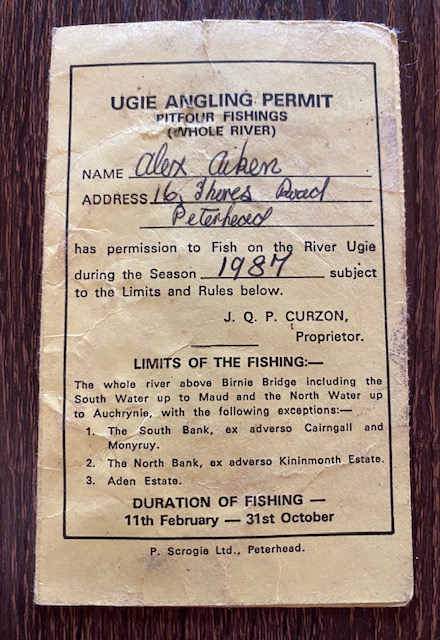 UGIE ANGLING PERMIT
PITFOUR FISHINGS
(WHOLE RIVER)
NAME Alex Aiken
ADDRESS 16, Road
Peterhead
has permission to Fish on the River Ugie
during the Season 1987 subject
to the Limits and Rules below.
J. Q. P. CURZON,
Proprietor.
LIMITS OF THE FISHING:—
The whole river above Birnie Bridge including the
South Water up to Maud and the North Water up
to Auchrynie, with the following exceptions:—
1. The South Bank, ex adverso Cairngall and
Monyruy.
2. The North Bank, ex adverso Kininmonth Estate.
3. Aden Estate.
DURATION OF FISHING —
11th February — 31st October
P. Scrogie Ltd., Peterhead.